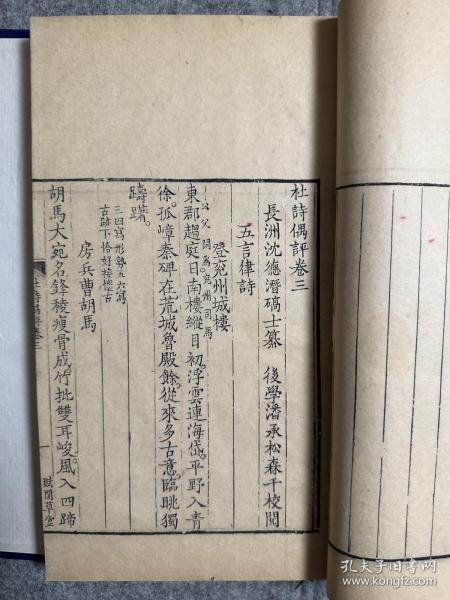 杜詩偶評卷三
長洲沈德潛碻士纂　後學潘承松森千校閱
五言律詩
登兗州城樓
公父閑為兗州司馬
東郡趨庭日南樓縱目初浮雲連海岱平野入青
徐孤嶂秦碑在荒城魯殿餘從來多古意臨眺獨
躊躇
三四寫形勢五六寫
古跡下恰好接懷古
房兵曹胡馬
胡馬大宛名鋒稜瘦骨成竹批雙耳峻風入四蹄
杜詩偶評卷三
一
賦閒草堂
孔夫子旧书网
www.kongfz.com